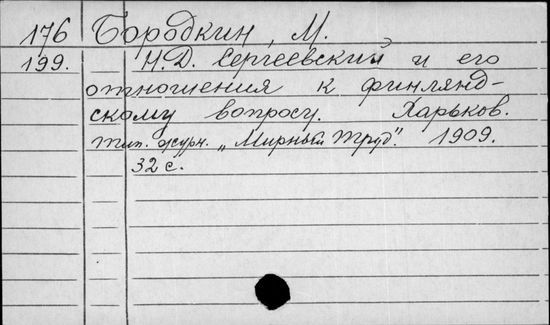 176 Бородкин, М.
199. Н.Д. Сергеевский и его
отношения к финлянд-
скому вопросу. Харьков.
Тип. журн. „Мирный Труд“. 1909.
32 с.